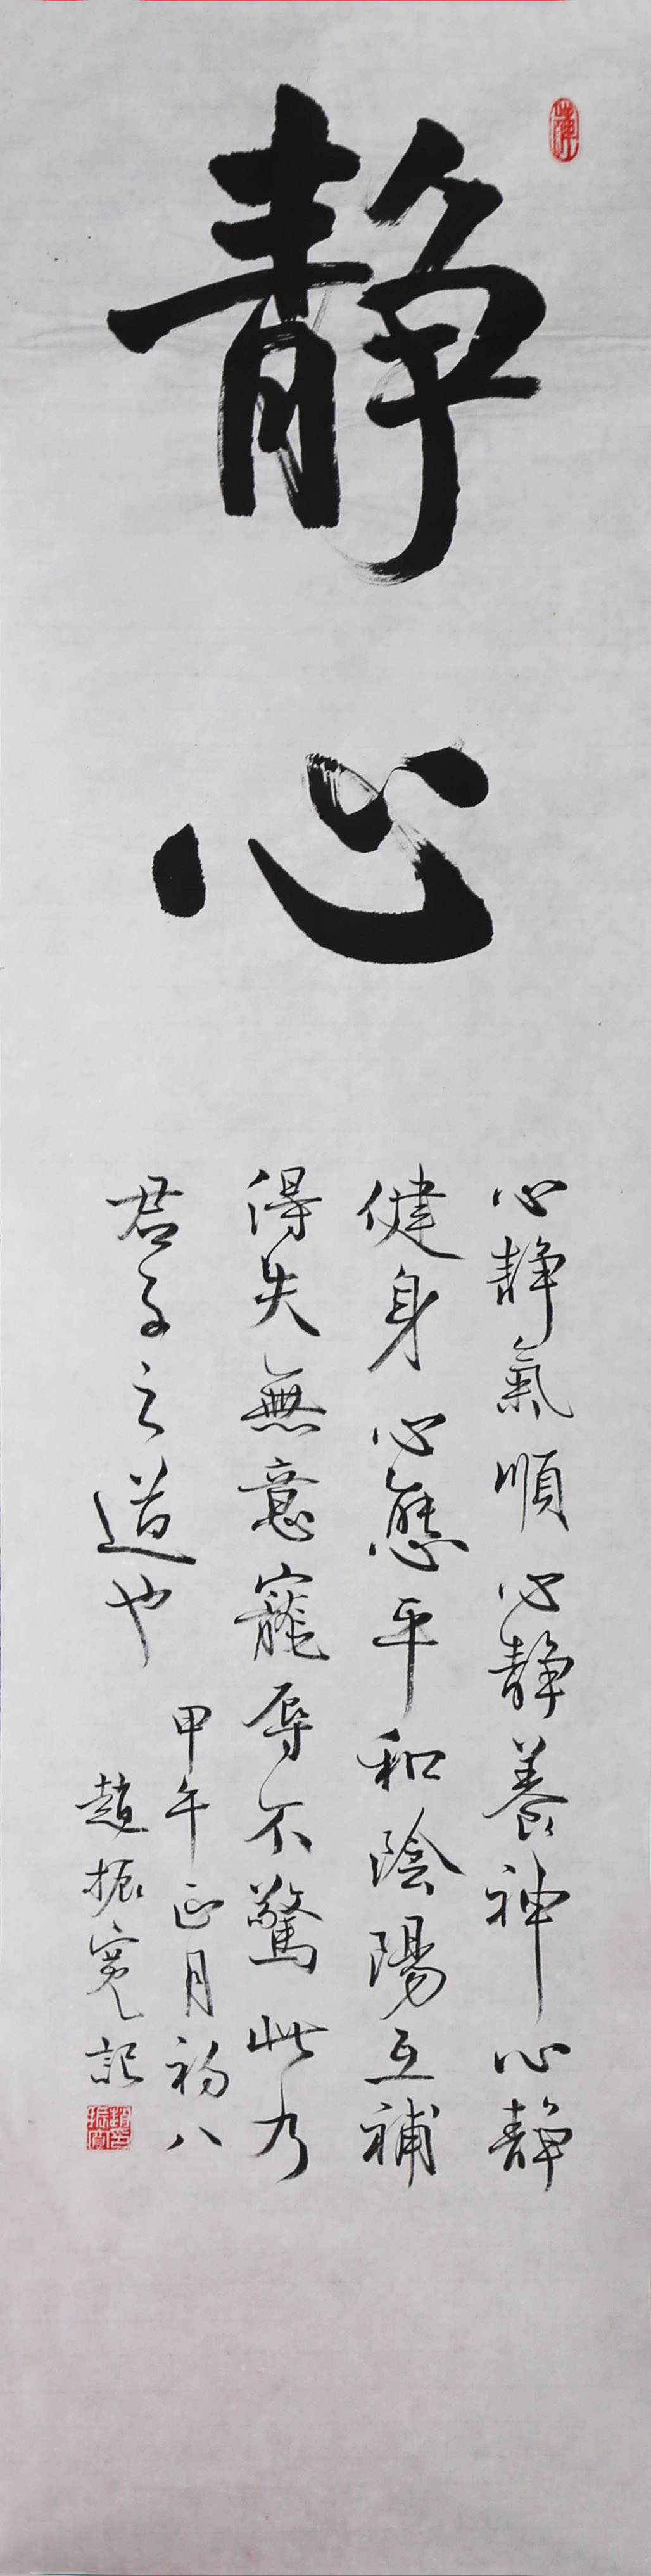 静心
心静氣順心静養神心静
健身心態平和陰陽互補
得失無意寵辱不驚此乃
君子之道也
甲午正月初八
趙振寬記